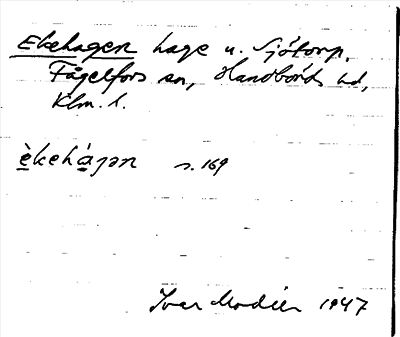 Ekehagen hage u. Sjötorp,
Fågelfors sn, Handbörds hd,
Klm. l.
èkehàgən s. 169
Ivar Modéer 1947